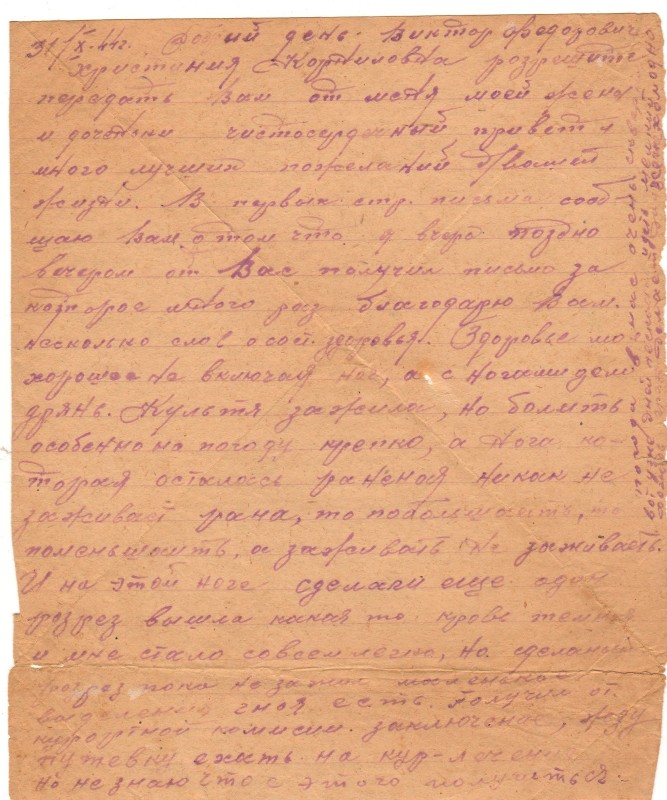 31/X-44г. Добрый день. Виктор Федорович
Христиния Корниловна розрешите
передать Вам от меня моей жены
и дочаньки чистосердечный привет и
много лучших пожеланий в Вашей
жизни. В первых стр. письма сооб
щаю Вам о том что я вчера поздно
вечером от Вас получил письмо за
которое много раз благодарю Вам.
несколько слов о сост. здоровья. Здоровье мо
хорошее не включая ног, а с ногами дело
дрянь. Культя зажила, но болить
особенно на погоду крепко, а нога ко-
торая осталась раненая никак не
заживает рана, то побольшаеть, то
поменьшаить, а заживать не заживаеть.
И на этой ноге сделали еще один
розрез вышла какая то кровь темная
и мне стало совсем легко, но сделаный
розрез пока не зажил маленькое
выделения гноя есть. Получил от
курортной комисии заключение, жду
путевку ехать на кур-лечение
но не знаю что с этого получиться.
погода в нас очень